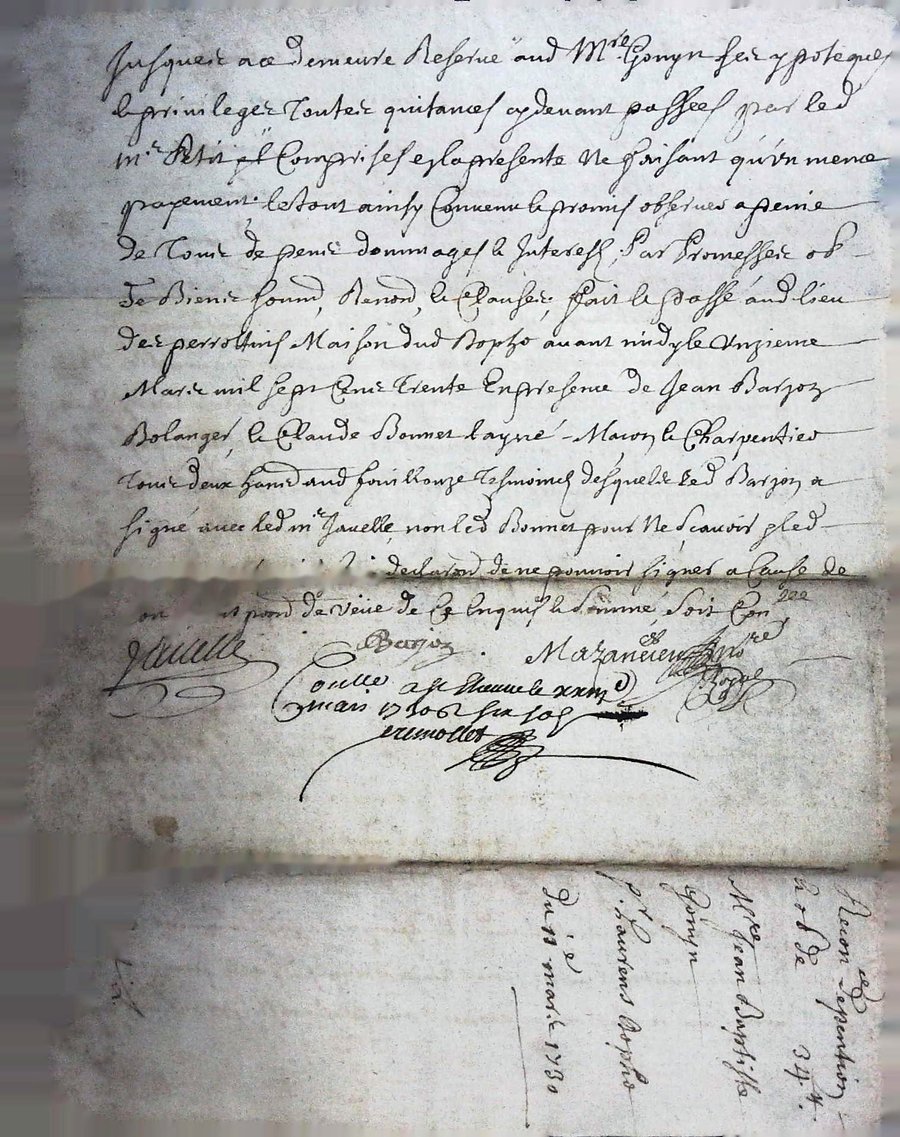 Jusques a ce demeure Reserve aud Mre Gonyn ses ypoteques
& privileges Toutes quitances cydevant passees par led
mr Petit Comprises ez la presente Ne faisant qu'un meme
payement. le tout ainsy Convenu & promis observer a peine
de Tous depens dommages & Interests, Par Promesses ob
De Biens soumd, Renond, & Clauses, fait & passé aud lieu
des perrotins Maison dud Bopho avant midy le Unzieme
Mars mil sept Cens Trente En presence de Jean Barjon
Bolanger, & Claude Bonnet layné Maçon & Charpentier
Tous deux aud fouillouze Tesmoins desquels Led Barjon a
signé avec led mr Javelle, non led Bonnet pour Ne scavoir led
declarand de ne pouvoir signer a Cause de
de veüe de Ce Enquis & sommé, Soit Con
Javelle Barjon. Mazancieu
Conlle a St Etienne le
mars 1730 six sols
Recon depention
a ob de 34
Mre Jean Baptiste
Gonyn
pr. Laurens Bopho
Du 11e mars 1730